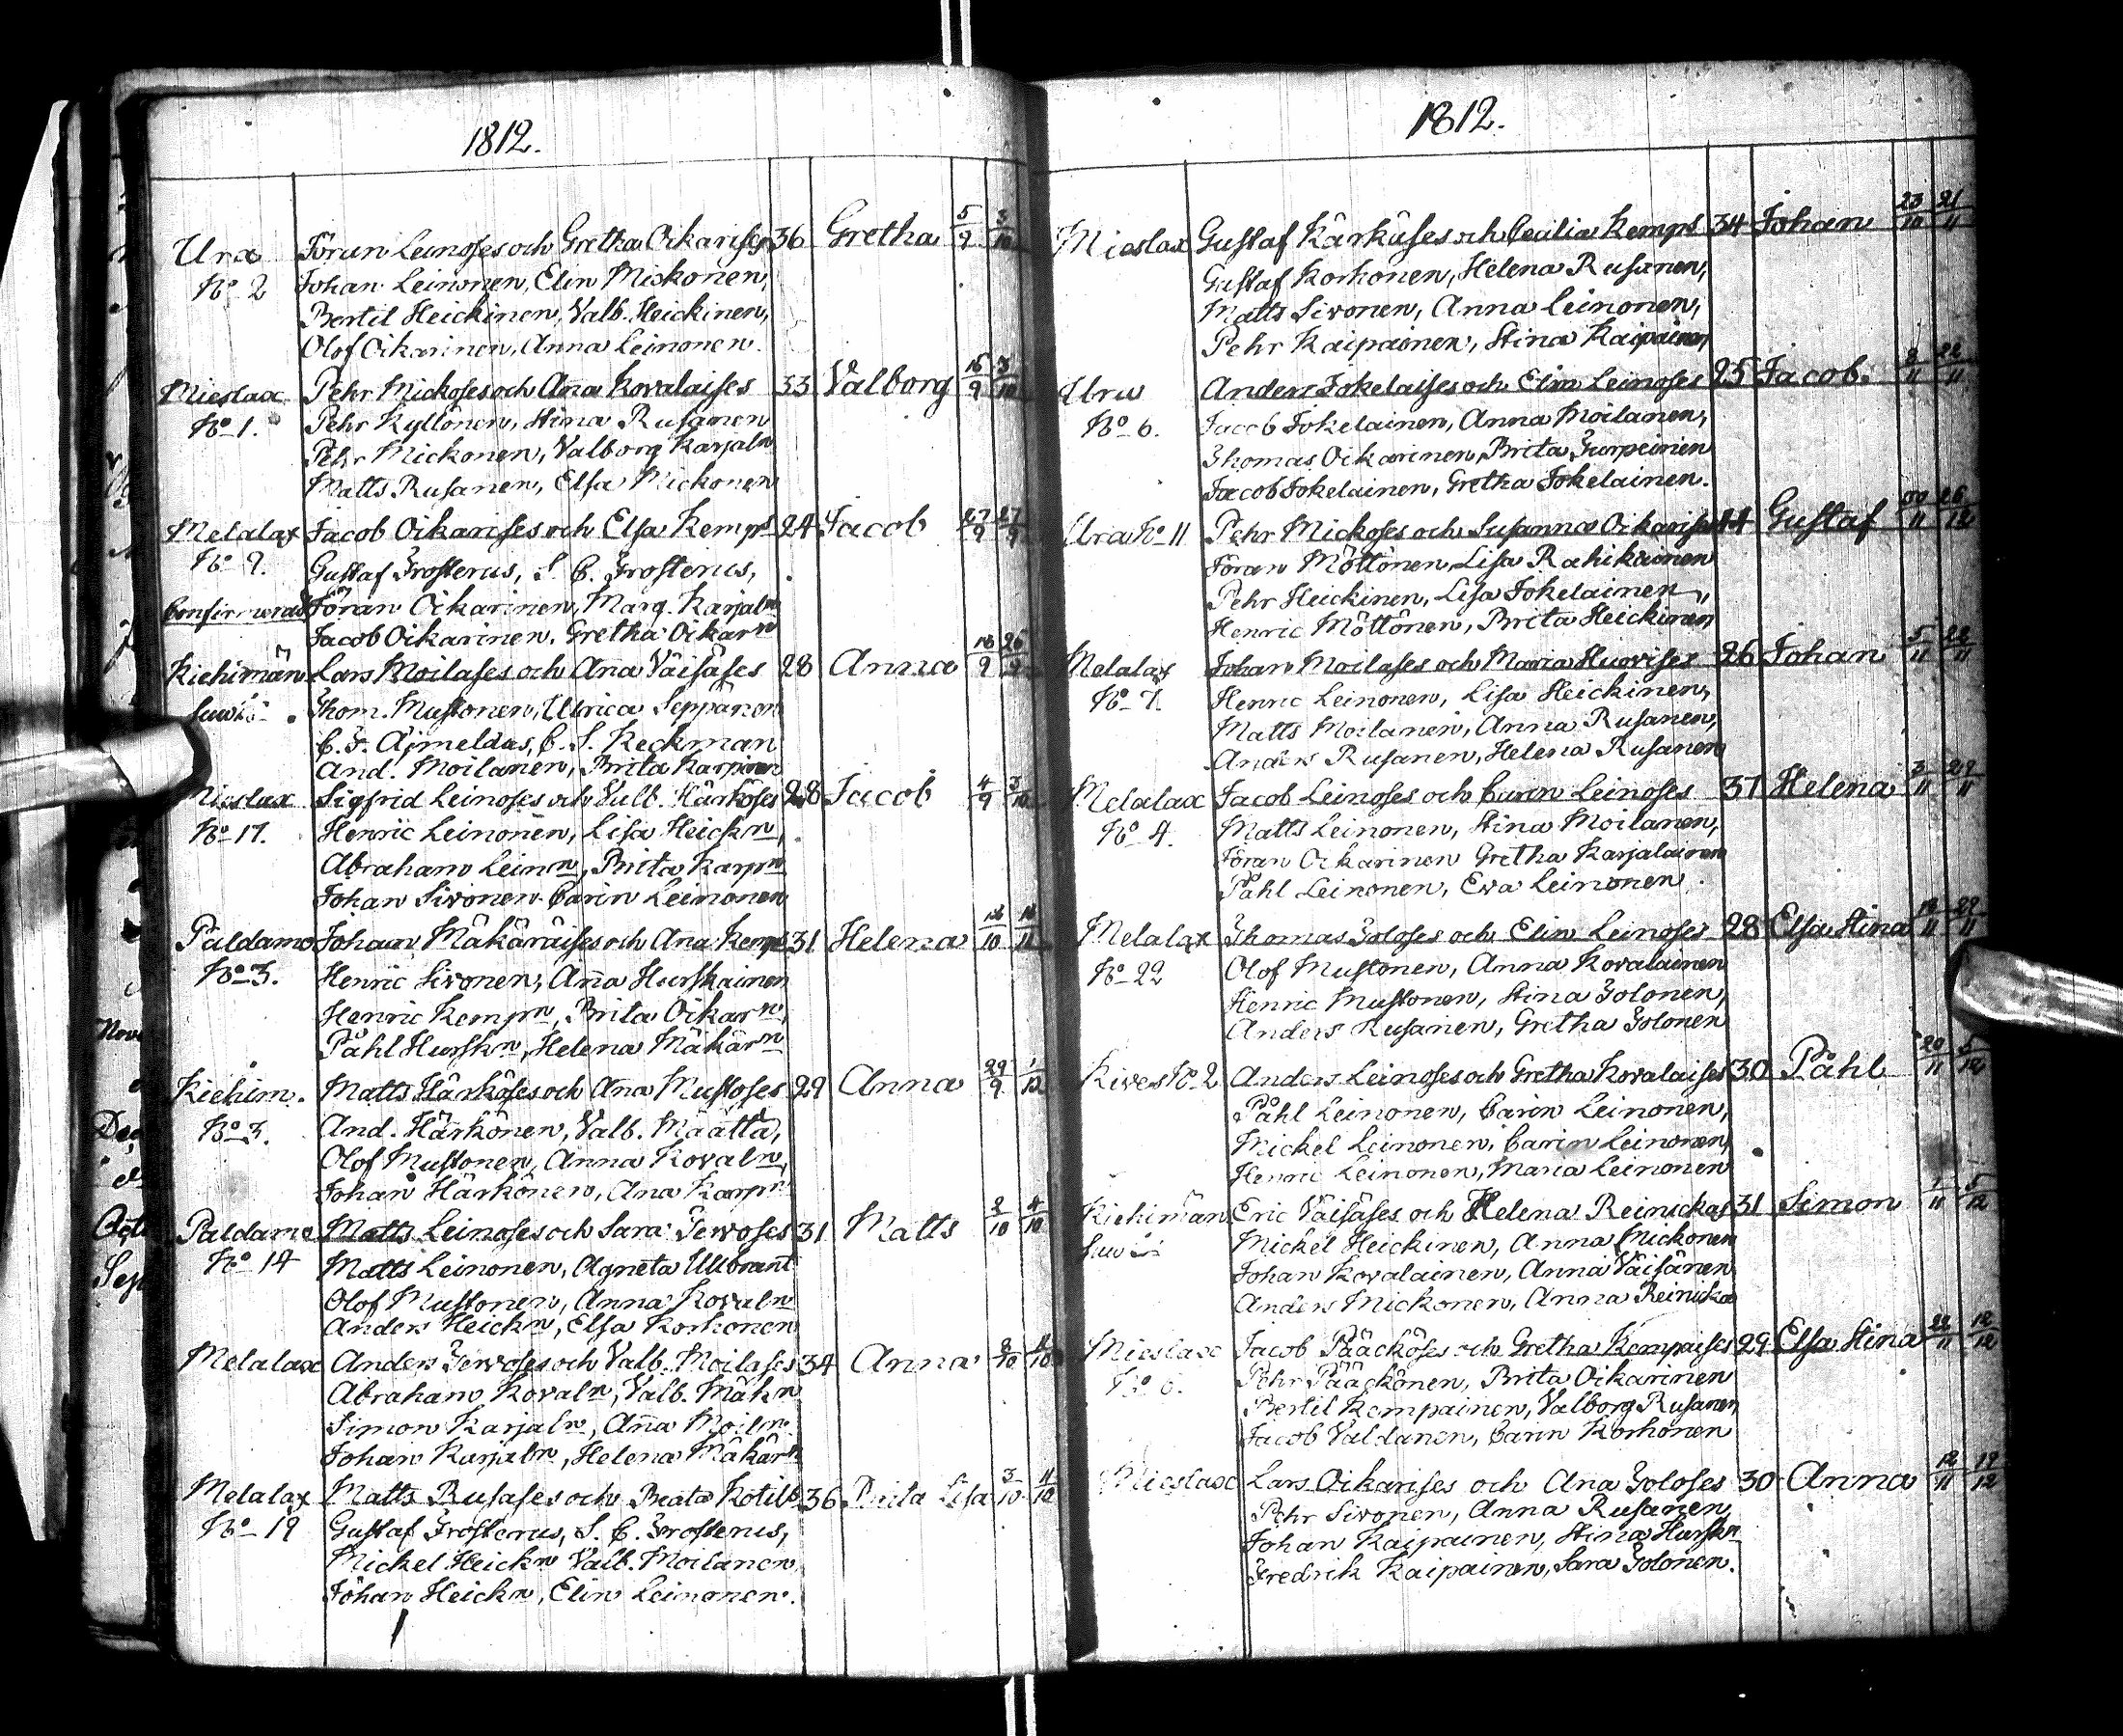 1812.
Ura Jöran Leinoses och Gretha Oikarises 36 Gretha 5/9 3/10
No 2 Johan Leinonen, Elin Mickonen,
Bertil Heickinen, Valb. Heickinen,
Olof Oikarinen, Anna Leinonen.
Mieslax Pehr Mickoses och Ana Kovalaises 33 Valborg 15/9 3/10
No 1. Pehr Kyllönen, Stina Rusanen
Pehr Mickonen, Valborg Karjaln
Matts Rusanen, Elsa Mickonen
Melalax Jacob Oikarises och Elsa Kemps 24 Jacob 27/9 27/9
No 9. Gustaf Frosterus, S. C. Frosterus,
Confirmerad Jöran Oikarinen, Marg. Karjaln
Jacob Oikarinen, Gretha Oikarn
Kiehimän Lars Moilases och Ana Väisäses 28 Anna 18/9 26/9
suu Thom. Mustonen, Ulrica Seppänen
C. F. Ajmeldus, C. S. Keckman
And. Moilanen, Brita Karpinen
Mieslax Sigfrid Leinoses och Valb. Härköses 28 Jacob 4/9 3/10
No 17. Henric Leinonen, Lisa Heickn,
Abraham Leinn, Brita Karpn
Johan Sivonen Carin Leinonen
Paldamo Johan Mäkäräises och Ana Kemps 31 Helena
No 3. Henric Sivonen, Anna Hurskainen
Henric Kempn, Brita Oikarn,
Påhl Hurskn, Helena Mäkärn
Kiehim. Matts Härköses och Ana Mustoses 29 Anna 29/9 1/12
No 3. And. Härkönen, Valb. Määttä,
Olof Mustonen, Anna Kovaln,
Johan Härkönen, Ana Karpn
Paldamo Matts Leinoses och Sara Tervoses 31 Matts 2/10 4/10
No 14 Matts Leinonen, Agneta Ullbrant
Olof Mustonen, Anna Kovaln
Anders Heickn, Elsa Korhonen
Melalax Anders Tervoses och Valb. Moilases 34 Anna 2/10 4/10
Abraham Kovaln, Valb. Mäkn
Simon Karjaln, Anna Moiln.
Johan Karjaln, Helena Mäkärn
Melalax Matts Rusases och Beata Kotilb. 36 Brita Lisa 3/10 4/10
No 19 Gustaf Frosterus, S. C. Frosterus,
Mickel Heickn Valb. Moilanen,
Johan Heickn, Elin Leinonen.
1812.
Mieslax Gustaf Kärkäses och Cecilia Kemps 34 Johan 23/10 21/11
Gustaf Korhonen, Helena Rusanen,
Matts Sivonen, Anna Leinonen,
Pehr Kaipainen, Stina Kaipainen
Ura Anders Jokelaises och Elin Leinoses 25 Jacob. 8/11 22/11
No 6. Jacob Jokelainen, Anna Moilanen,
Thomas Oikarinen, Brita Turpeinen
Jacob Jokelainen, Gretha Jokelainen.
Ura No 11 Pehr Mickoses och Susanna Oikarises 44 Gustaf
Jöran Möttönen, Lisa Rahikainen
Pehr Heickinen, Lisa Jokelainen,
Henric Möttönen, Brita Heickinen
Melalax Johan Moilases och Maria Huovises 26 Johan 5/11 22/11
No 7. Henric Leinonen, Lisa Heickinen,
Matts Moilanen, Anna Rusanen,
Anders Rusanen, Helena Rusanen
Melalax Jacob Leinoses och Carin Leinoses 37 Helena 3/11 29/11
No 4. Matts Leinonen, Stina Moilanen,
Jöran Oikarinen Gretha Karjalainen
Påhl Leinonen, Eva Leinonen.
Melalax Thomas Toloses och Elin Leinoses 28 Elsa Stina
No 22 Olof Mustonen, Anna Kovalainen
Henric Mustonen, Stina Tolonen,
Anders Rusanen, Gretha Tolonen
Kives No 2 Anders Leinoses och Gretha Kovalaises 30 Påhl 20/11 5/12
Påhl Leinonen, Carin Leinonen,
Mickel Leinonen, Carin Leinonen,
Henric Leinonen, Maria Leinonen
Kiehimän Eric Väisäses och Helena Reinickas 31 Simon 1/11 5/12
suu Mickel Heickinen, Anna Mickonen
Johan Kovalainen, Anna Väisänen
Anders Mickonen, Anna Reinicka
Mieslax Jacob Pääcköses och Gretha Kempaises 29 Elsa Stina 22/11 12/12
No 6. Pehr Pääckönen, Brita Oikarinen
Bertil Kempainen, Valborg Rusanen,
Jacob Valdanen, Carin Korhonen
Mieslax Lars Oikarises och Ana Toloses 30 Anna 12/11 19/12
Pehr Sivonen, Anna Rusanen,
Johan Kaipainen, Stina Hurskn
Fredrik Kaipainen, Sara Tolonen.